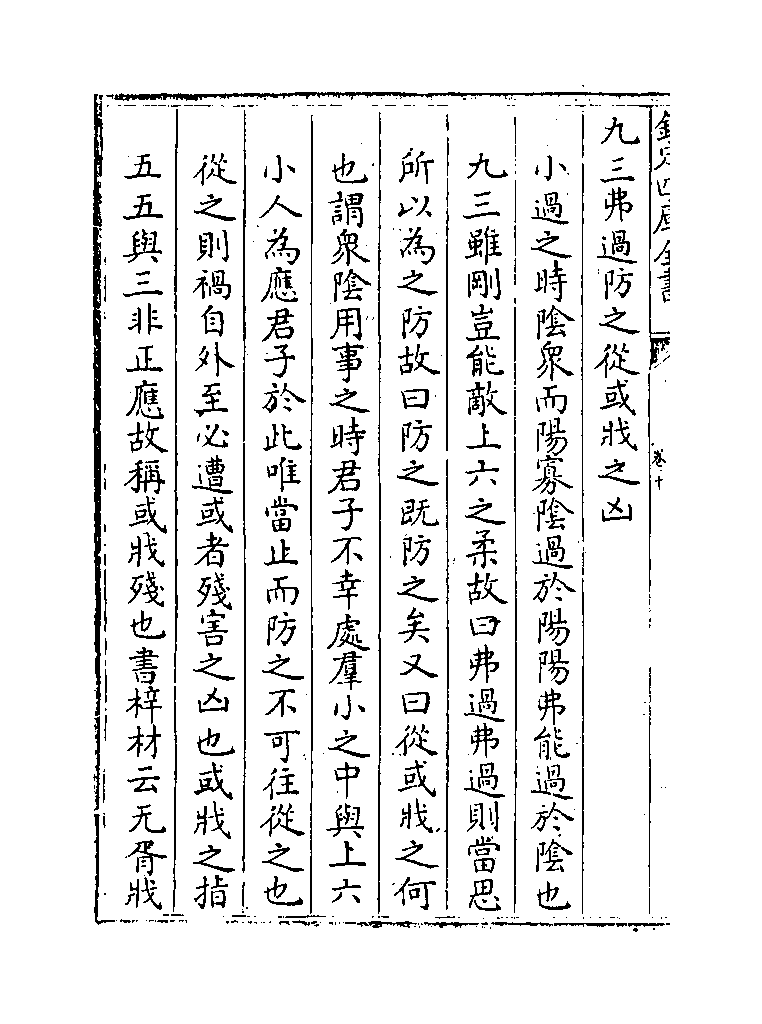 欽定四庫全書
卷十
九三弗過防之從或戕之凶
小過之時陰衆而陽寡陰過於陽陽弗能過於陰也
九三雖剛豈能敵上六之柔故曰弗過弗過則當思
所以為之防故曰防之既防之矣又曰從或戕之何
也謂衆陰用事之時君子不幸處羣小之中與上六
小人為應君子於此唯當止而防之不可往從之也
從之則禍自外至必遭或者殘害之凶也或戕之指
五五與三非正應故稱或戕殘也書梓材云无胥戕